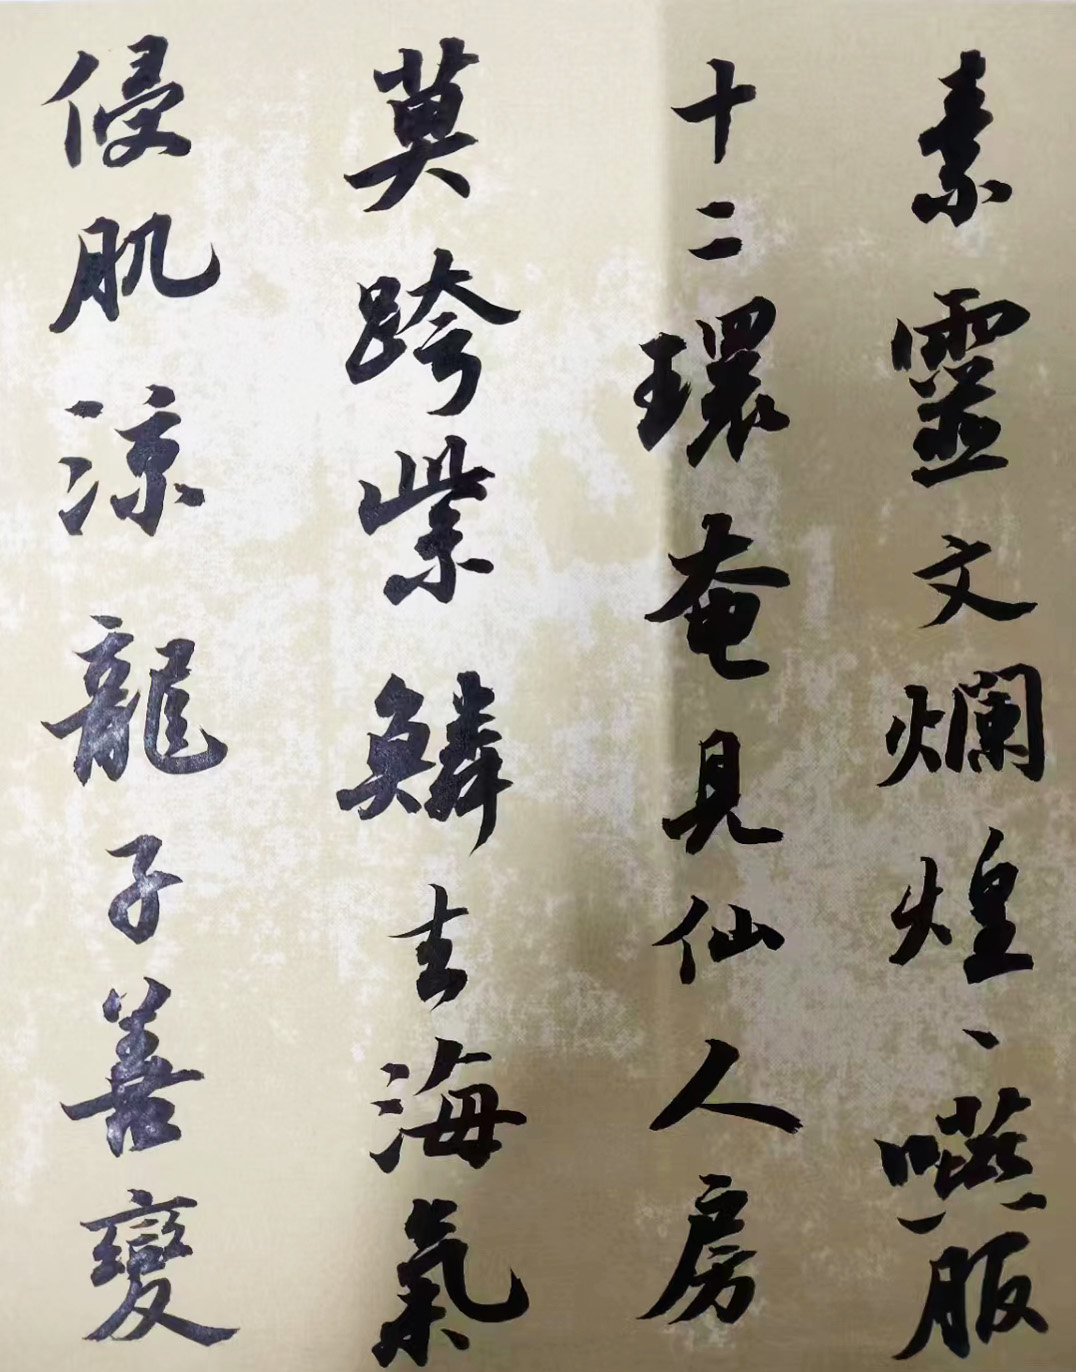 素靈文爛煌、嚥服
十二環奄見仙人房
莫跨紫鱗去海氣
侵肌涼龍子善變